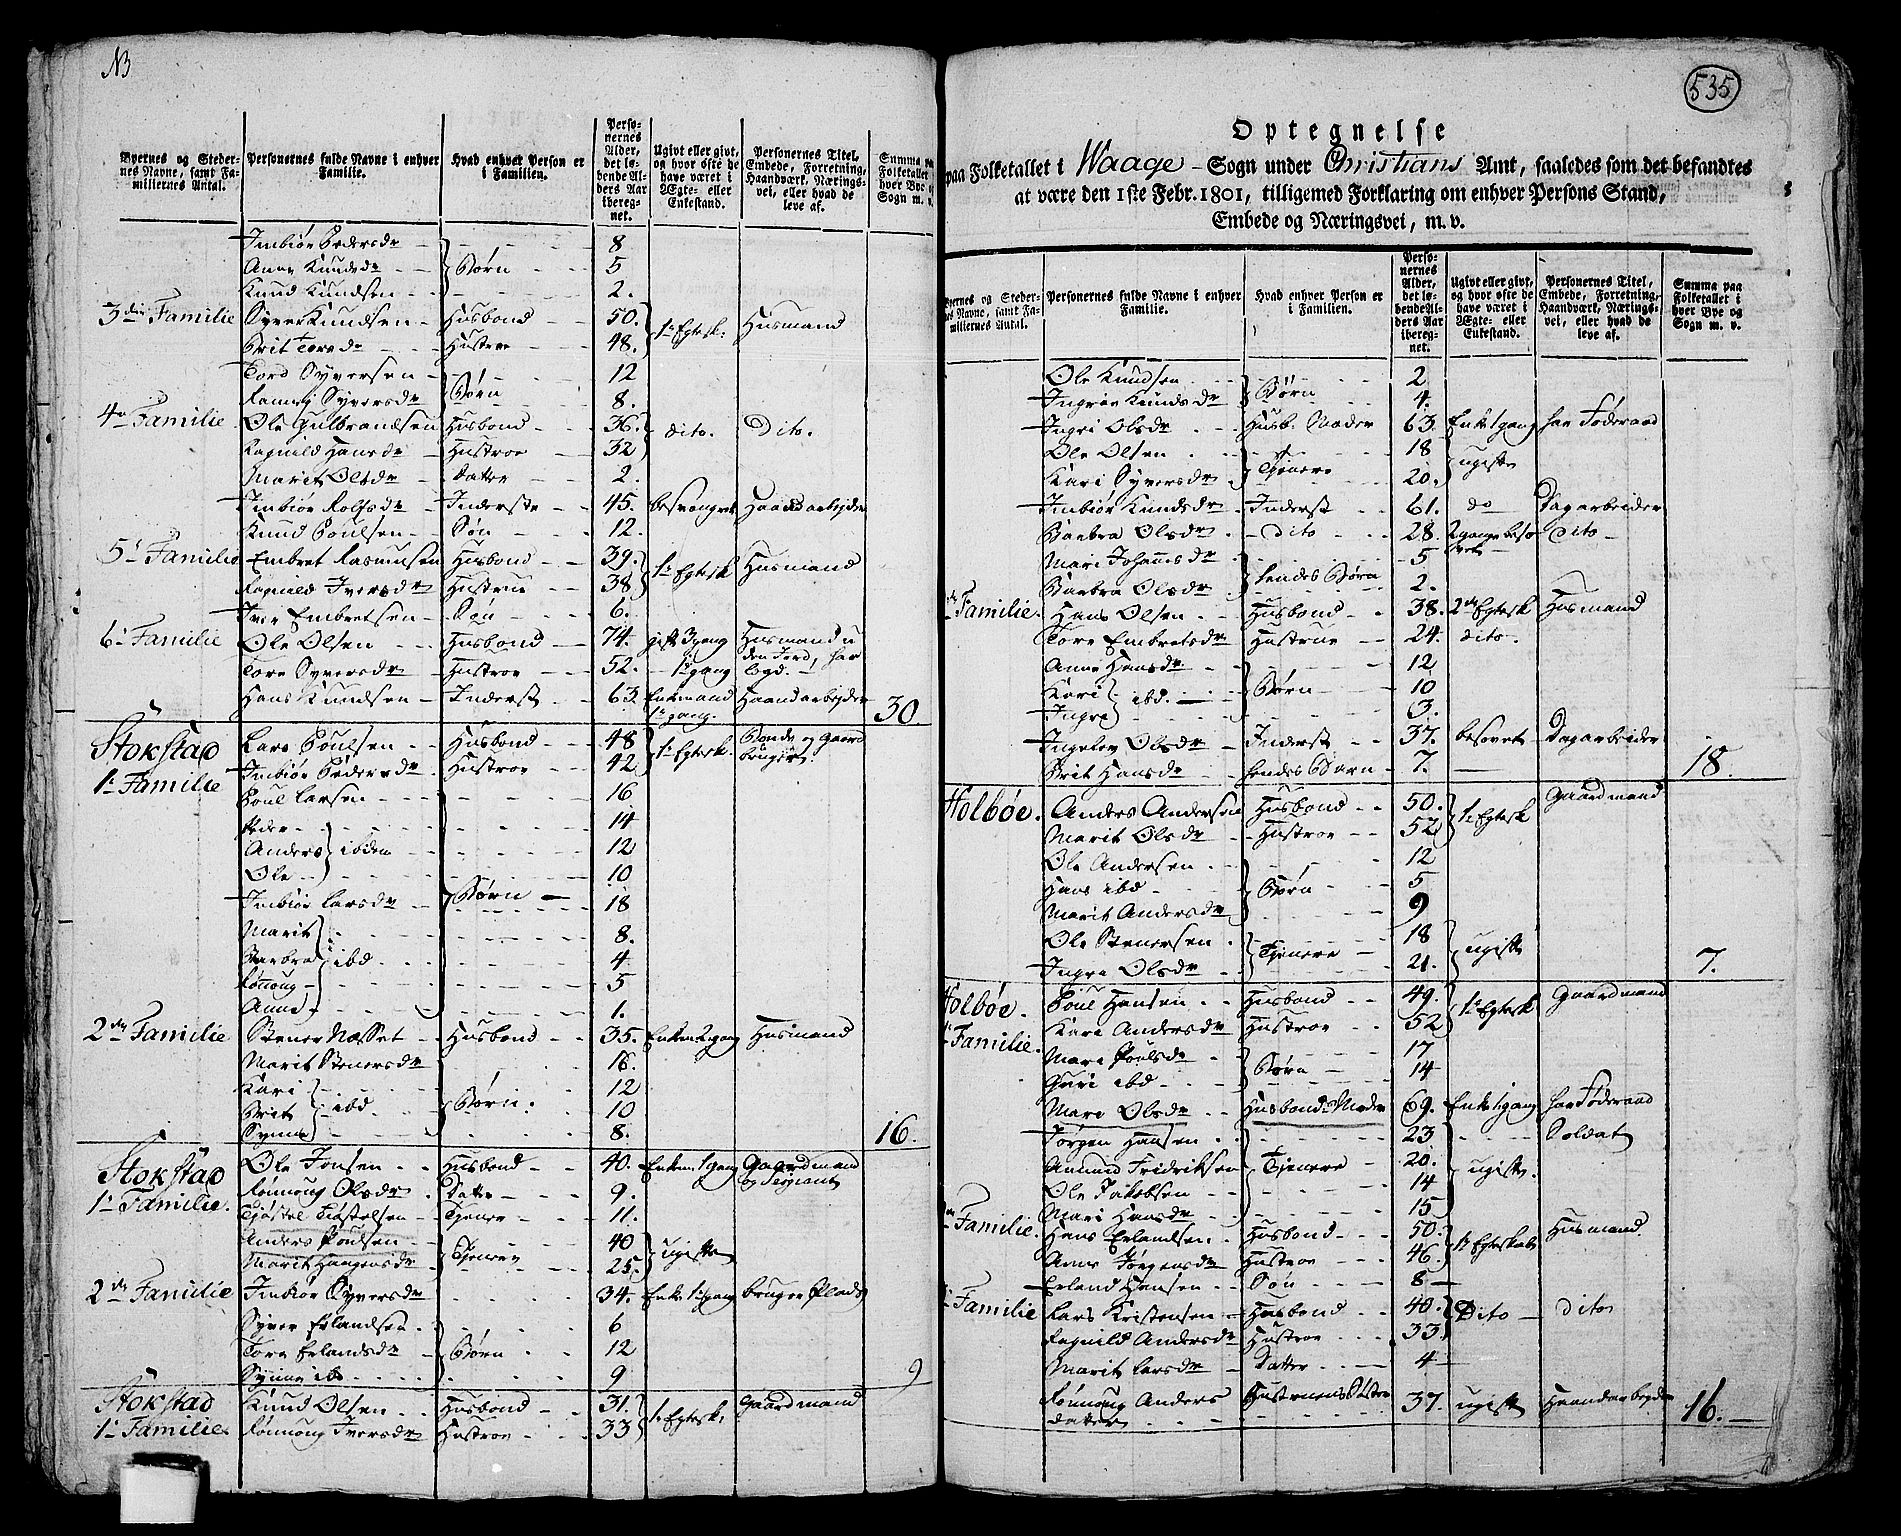 NB
Byernes og Steder-
nes Navne, samt Fa-
miliernes Antal.
Personernes fulde Navne i enhver
Familie.
Hvad enhver Person er
i Familien.
Perso-
nernes
Alder,
det lø-
bende Al-
ders Aar
ibereg-
net.
Ugivt eller givt,
og hvor ofte de
have været i
Ægte- eller
Enkestand.
Personernes Titel,
Embede, Forretning,
Haandværk, Nærings-
vei, eller hvad de
leve af.
Summa paa
Folketallet i
hver Bye og
Sogn m. v.
Imbiør Pedersdr 8
Anne Knudsdr Børn 5
Knud Knudsen 2.
3die Familie Syver Knudsen Husbond 50. 1te Egtesk. Husmand
Brit Toresdr Hustroe 48.
Tord Syversen 12
Syversdr Børn 8.
4de Familie Ole Gulbrandsen Husbond 36. dito. Dito.
Ragnild Hansdr Hustroe 32
Marit Olsdr Datter 2.
Imbiør Rolfsdr Inderste 45. besvangret Haandarbeyder
Knud Poulsen Søn 12.
5te Familie Embret Rasmusen Husbond 39. 1te Egtesk Husmand
Ragnild Iversdr Hustrue 38
Iver Embretsen Søn 6.
6te Familie Ole Olsen Husbond 74. gift 3 gang Husmand u
den Jord, har
Tore Syversdr Hustroe 52. 1te gang legd.
Hans Knudsen Inderst 63. Enkemand Haandarbeyder 30
1te gang.
Stokstad Lars Poulsen Husbond 48 1te Egtesk. Bonde og Gaard
1te Familie Imbiør Pedersdr Hustroe 42 bruger.
Poul Larsen 16
Peder 14
Anders ibidem 12
Ole 10
Imbiør Larsdr Børn 18
Marit 8.
Barbra ibd 4
Rønnoug 5
Anne 1.
2den Familie Stener Næsset Husbond 35. Enkem 1 gang Husmand
Marit Stenersdr 16.
Kari 12
Brit ibd. Børn. 10
Synne 8. 16.
Stokstad Ole Jonsen Husbond 40. Enkem 1 gang Gaardmand
og Sergiant
1te Familie. Rønnoug Olsdr Datter 9.
Tjøstel Tiøstelsen Tjener 11.
Anders Poulsen 40 ugifte
Marit Haagensdr Tjenere 25.
2den Familie Imbiør Syversdr 34. Enke 1 gang bruger Plads
Syver Erlandsen 6
Tore Erlandsdr Børn 12
Synne ibd 9 9
Stokstad Knud Olsen Husbond 31. 1te Egtesk. Gaardmand
1te Familie Rønnoug Iversdr Hustroe 33
535
Optegnelse
paa Folketallet i Waage Sogn under Christians Amt, saaledes som det befandtes
at være den 1ste Febr. 1801, tilligemed Forklaring om enhver Persons Stand,
Embede og Næringsvei, m. v.
Byernes og Steder-
nes Navne, samt Fa-
miliernes Antal.
Personernes fulde Navne i enhver
Familie.
Hvad enhver Person er
i Familien.
Perso-
nernes
Alder,
det lø-
bende Al-
ders Aar
ibereg-
net.
Ugivt eller givt,
og hvor ofte de
have været i
Ægte- eller
Enkestand.
Personernes Titel,
Embede, Forretning,
Haandværk, Nærings-
vei, eller hvad de
leve af.
Summa paa
Folketallet i
hver Bye og
Sogn m. v.
Ole Knudsen 2
Ingri Knudsdr Børn 4.
Ingri Olsdr Husb. Moder 63. Enke 1 gang har Føderaad
Ole Olsen 18 ugifte
Kari Syversdr Tjenere 20.
Imbiør Knudsdr Inderst 61. do Dagarbeider
Barbra Olsdr dito 28. 2 gange beso Dito
vret
Mari Johannesdr 5
Barbra Olsdr hendes Børn 2.
Familie. Hans Olsen Husbond 38. 2de Egtesk Husmand
Tore Embretsdr Hustrue 24. dito.
Anne Hansdr 12
Kari ibd. Børn 10
Ingri 3.
Ingelev Olsdr Inderst 37. besovet Dagarbeider
Brit Hansdr hendes Barn 7. 18.
Holbøe. Anders Andersen Husbond 50. 1te Egtesk Gaardmand
Marit Olsdr Hustroe 52
Ole Andersen 12
Hans ibd Børn 5
Marit Andersdr 9
Ole Stenersen 18 ugifte
Ingri Olsdr Tjenere 21. 7.
Holbøe. Poul Hansen Husbond 49. 1te Egtesk Gaardmand
Familie. Kari Andersdr Hustroe 52
Mari Poulsdr 17
Guri ibd Børn 14
Mari Olsdr Husbonds Moder 69. Enke 1 gang har Føderaad
Jørgen Hansen 23 Soldat
Amund Fridriksen Tjenere 20. ugifte.
Ole Jakobsen 14
Mari Hansdr 15
Familie Hans Erlandsen Husbond 50. 1te Egteskab Husmand.
Anne Jørgensdr Hustroe 46.
Erland Hansen Søn 8
Familie Lars Kristensen Husbond 40. Dito dito
Ragnild Andersdr Hustroe 33
Marit Larsdr Datter 4
Rønnoug Anders Hustruens Søster 37. ugift Haandarbeyder
datter 16.